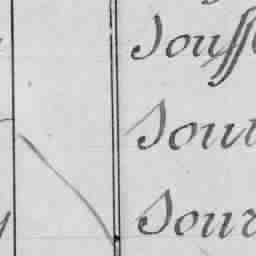 Souff
Sout
Sour